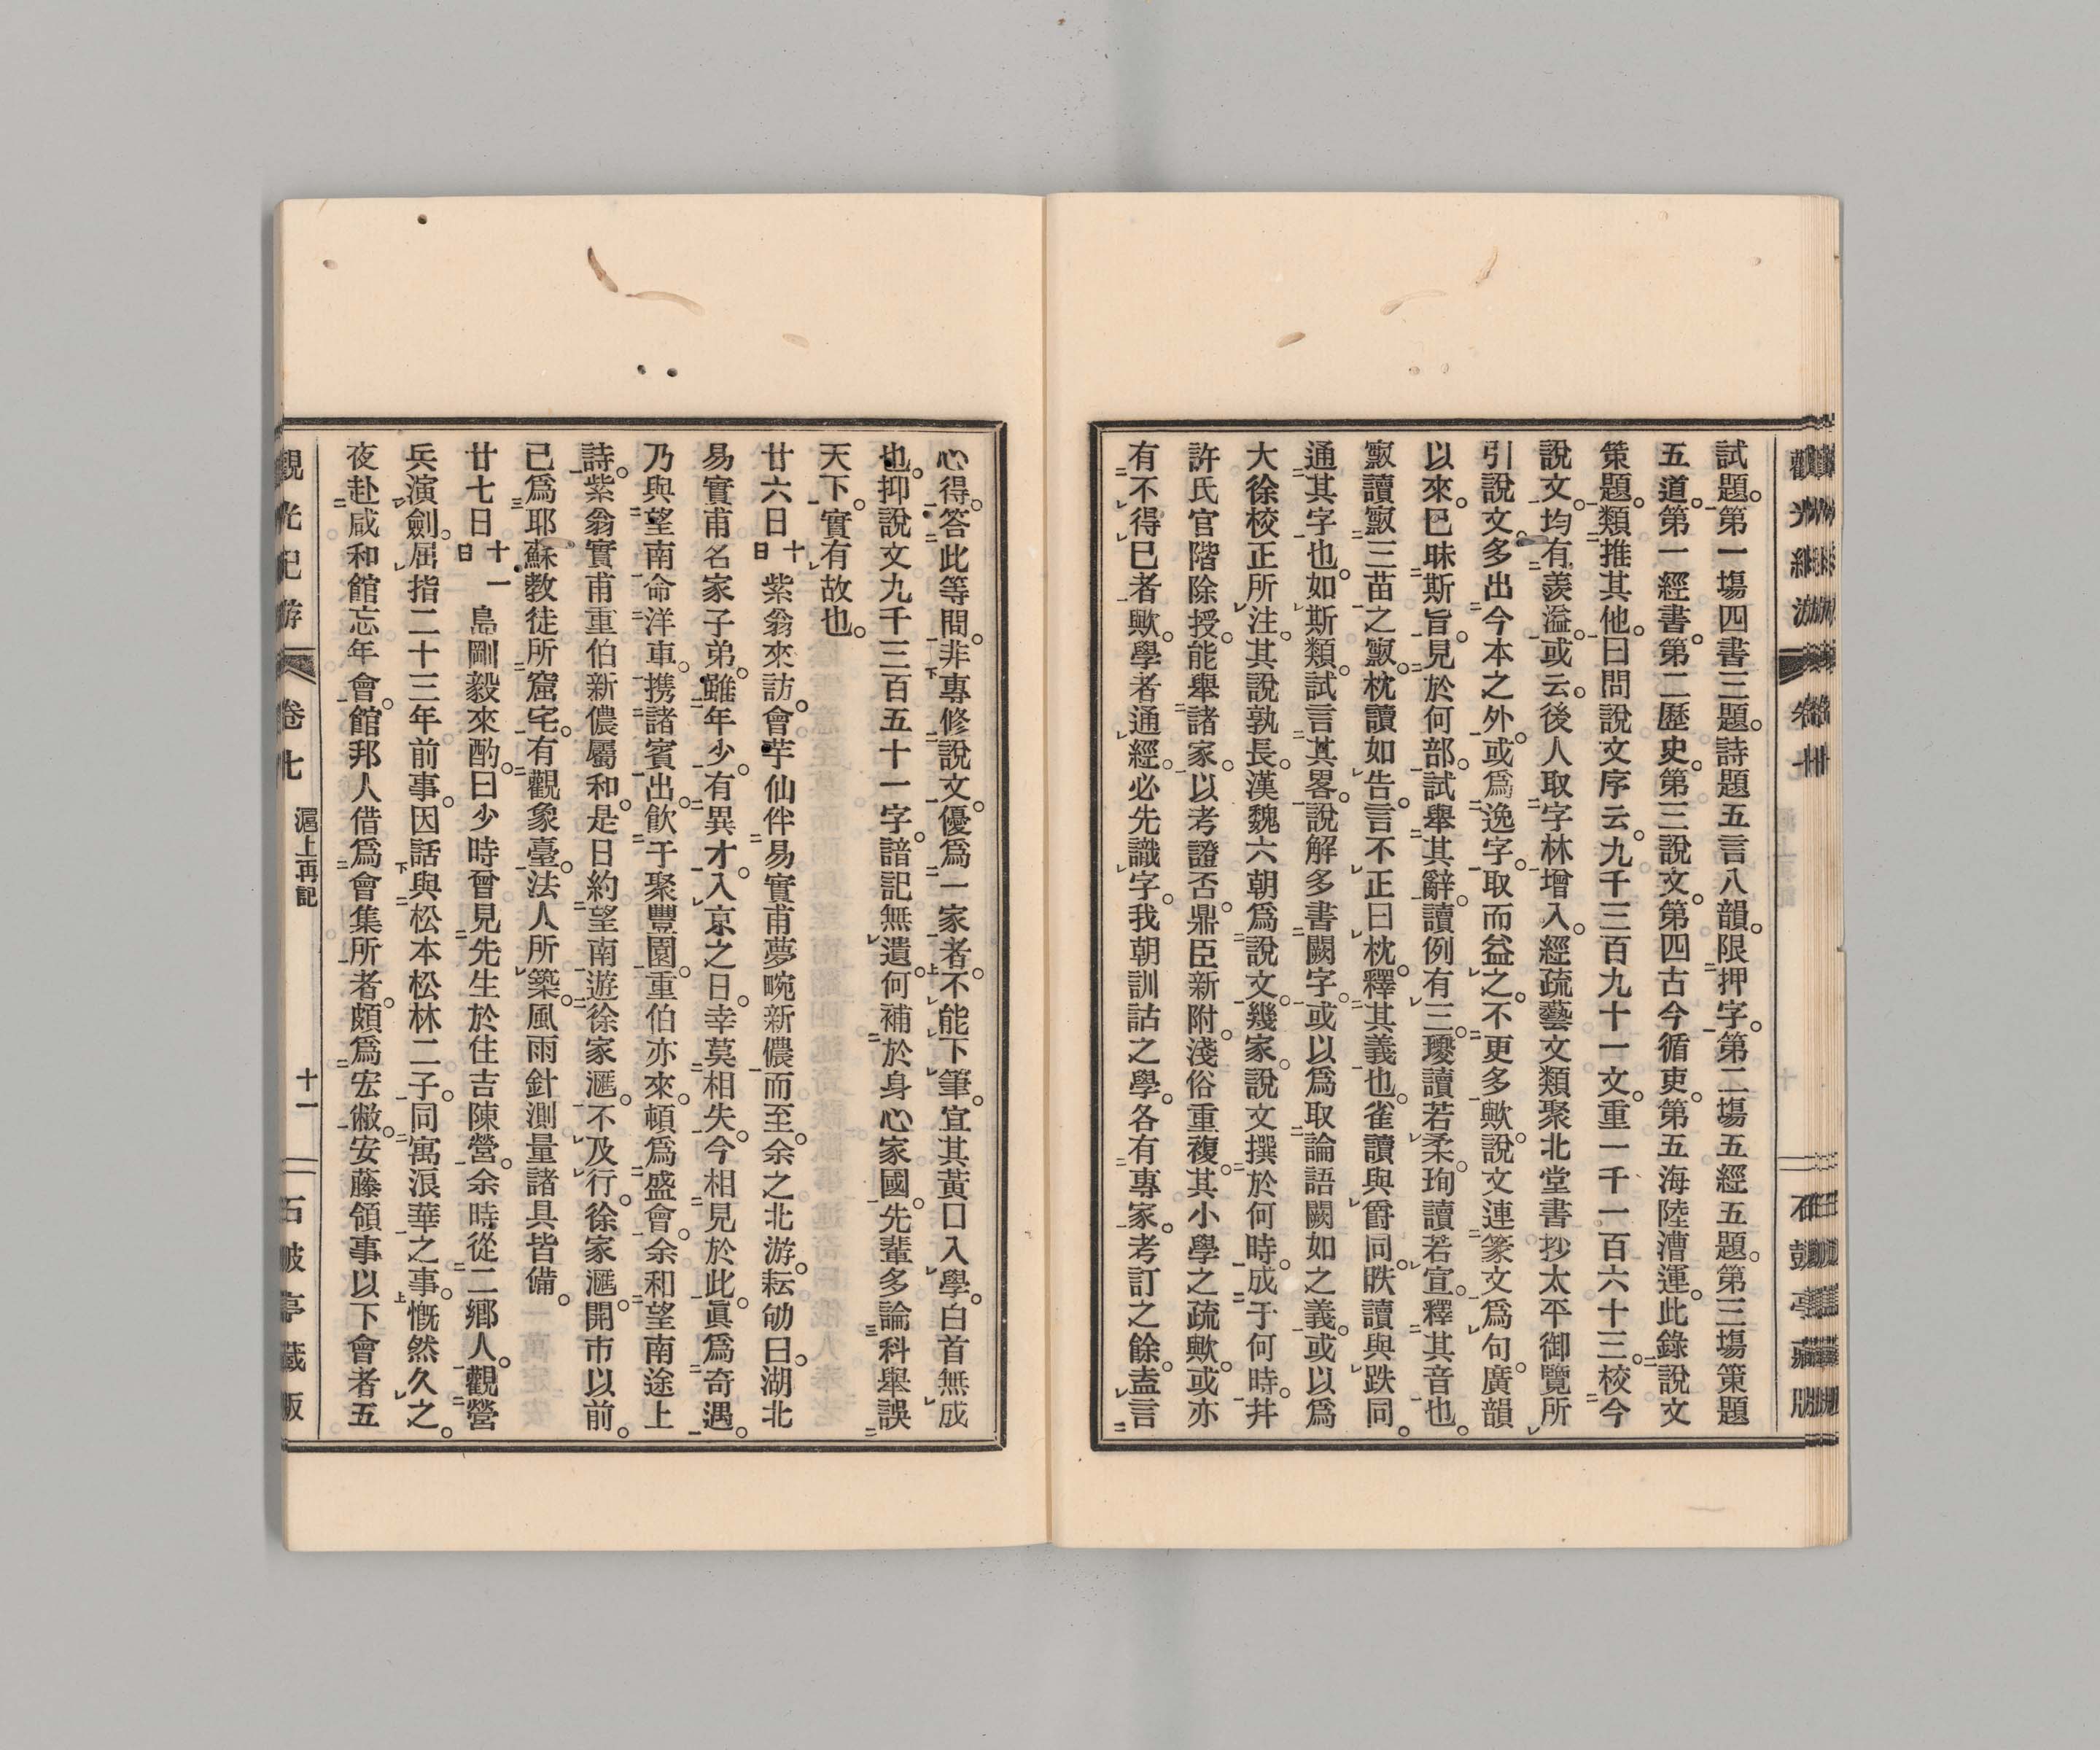 試題。第一塲四書三題。詩題五言八韻。限押字。第二塲五經五題。第三塲策題
五道。第一經書。第二歷史。第三說文。第四古今循吏。第五海陸漕運。此錄說文
策題。類推其他。曰問說文序云。九千三百九十一文。重一千一百六十三。校今
說文。均有羨溢。或云。後人取字林增入。經疏藝文類聚北堂書抄太平御覽所
引說文。多出今本之外。或爲逸字。取而益之。不更多歟。說文連篆文爲句。廣韻
以來。已昧斯旨。見於何部。試舉其辭。讀例有三。璦讀若柔。珣讀若宣。釋其音也。
㝮讀㝮三苗之㝮。枕讀如告。言不正曰枕。釋其義也。雀讀與爵同。昳讀與跌同。
通其字也。如斯類。試言其畧。說解多書闕字。或以爲取論語闕如之義。或以爲
大徐校正所注。其說孰長。漢魏六朝爲說文幾家。說文撰於何時。成于何時。幷
許氏官階除授。能舉諸家。以考證否。鼎臣新附。淺俗重複。其小學之疏歟。或亦
有不得已者歟。學者通經。必先識字。我朝訓詁之學。各有專家。考訂之餘。盍言
心得。答此等問。非專修說文。優爲一家者。不能下筆。宜其黃口入學。白首無成
也。抑說文九千三百五十一字。諳記無遺。何補於身心家國。先輩多論科舉誤
天下。實有故也。
廿六日十日 紫翁來訪。會芋仙伴易實甫夢畹新儂而至。余之北游。耘劬曰。湖北
易實甫名家子弟。雖年少。有異才。入京之日。幸莫相失。今相見於此。眞爲奇遇。
乃與望南命洋車。携諸賓出。飮于聚豐園。重伯亦來。頓爲盛會。余和望南途上
詩。紫翁實甫重伯新儂屬和。是日約望南遊徐家滙。不及行。徐家滙。開市以前。
已爲耶蘇教徒所窟宅。有觀象臺。法人所築。風雨針測量諸具皆備。
廿七日十一日 島剛毅來酌。曰少時曾見先生於住吉陳營。余時從二鄕人。觀營
兵演劍。屈指二十三年前事。因話與松本松林二子。同寓浪華之事。慨然久之。
夜赴咸和館忘年會。館邦人借爲會集所者。頗爲宏敞。安藤領事以下會者五
觀光紀游 卷七 滬上再記 十一 石鼓亭藏版